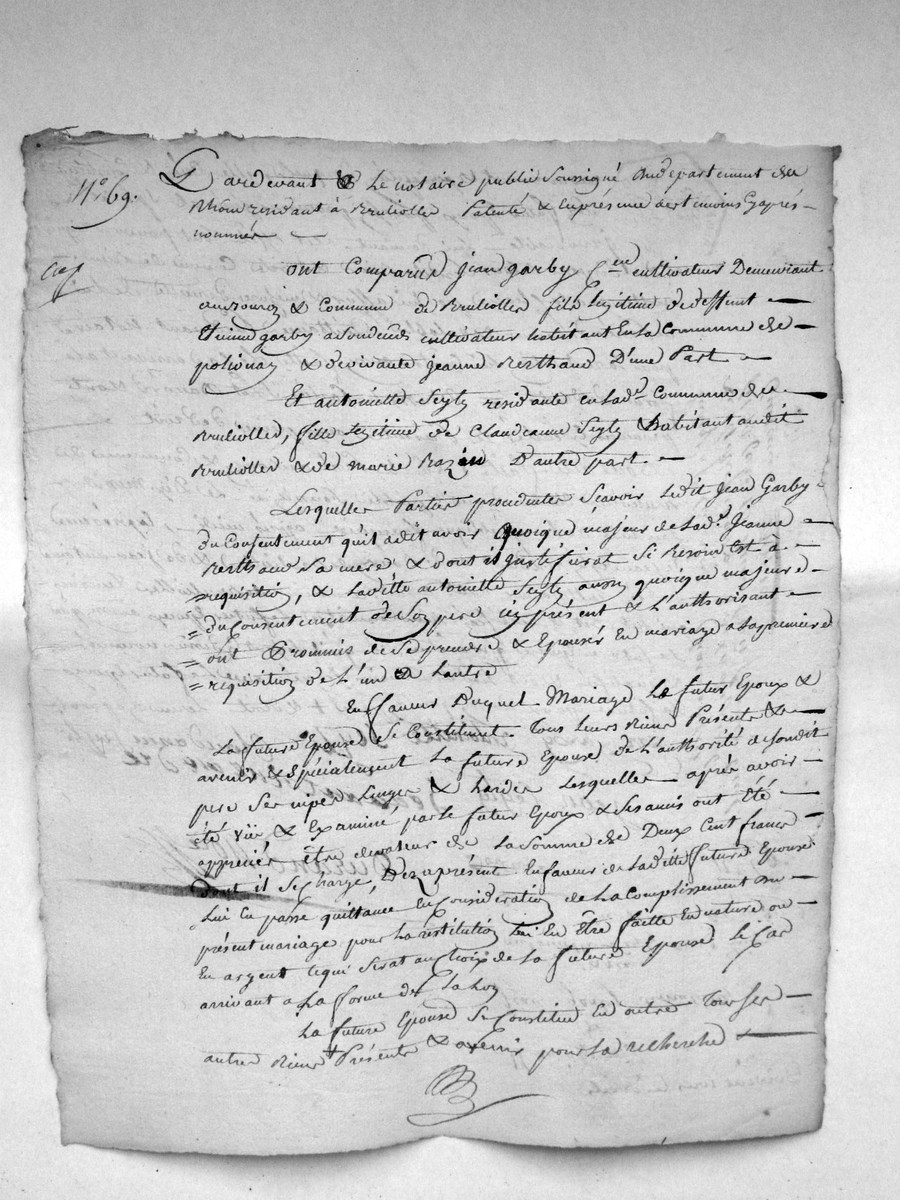 N.° 69. Pardevant Le notaire public Soussigné Du departement du
Rhône residant à Brulioller Patenté & En présence des temoins Cyaprés
nommés
ont Comparûe jean garby C.en cultivateur Demeurant
& Commune de Brulioller fils Legitime de deffunt
Etienne garby cultivateur habitant En La Commune de
polionay & de vivante jeanne Berthaud D'une Part
Et antoinette Seyty residante en Lad.e Commune de
Brulioller, fille Legitime de Claude Seyty habitant audit
Brulioller & de marie D'autre part.
Lesquelles Parties procedentes Scavoir Ledit jean Garby
du Consentement qu'il a dit avoir quoique majeur de Lad.e jeanne
Berthaud Sa mere & dont il justifierat Si Besoin Est à
requisition, & Laditte antoinette Seyty aussy quoique majeure
du Consentement de Son pere icy présent & L'authorisant
ont Promis de Se prendre & Epouser En mariage a La premiere
requisition de L'un De Lautre
En ffaveur Duquel Mariage Le futur Epoux &
La future Epouse Se Constituent Tous Leurs Biens Présents &
avenir & Spécialement La future Epouse de L'authorité de Sondit
pere Ses nipes Linges & hardes Lesquelles aprés avoir
été vüe & Examiné par le futur Epoux & Ses amis ont Été
appreciés être de valeur de La Somme de Deux Cent francs
Dont il Se charge, Dez aprésent En faveur de Laditte future Epouse
Lui En passe quittance En Considération de L'accomplissement Du
présent mariage pour La restitution lui En Être faitte En nature ou
En argent Ce qui Serat au Choix de La future Epouse le Cas
arrivant a La forme de La Loy
La future Epouse Se Constitue En outre Tous Ses
autres Biens Présents & avenir pour La recherche